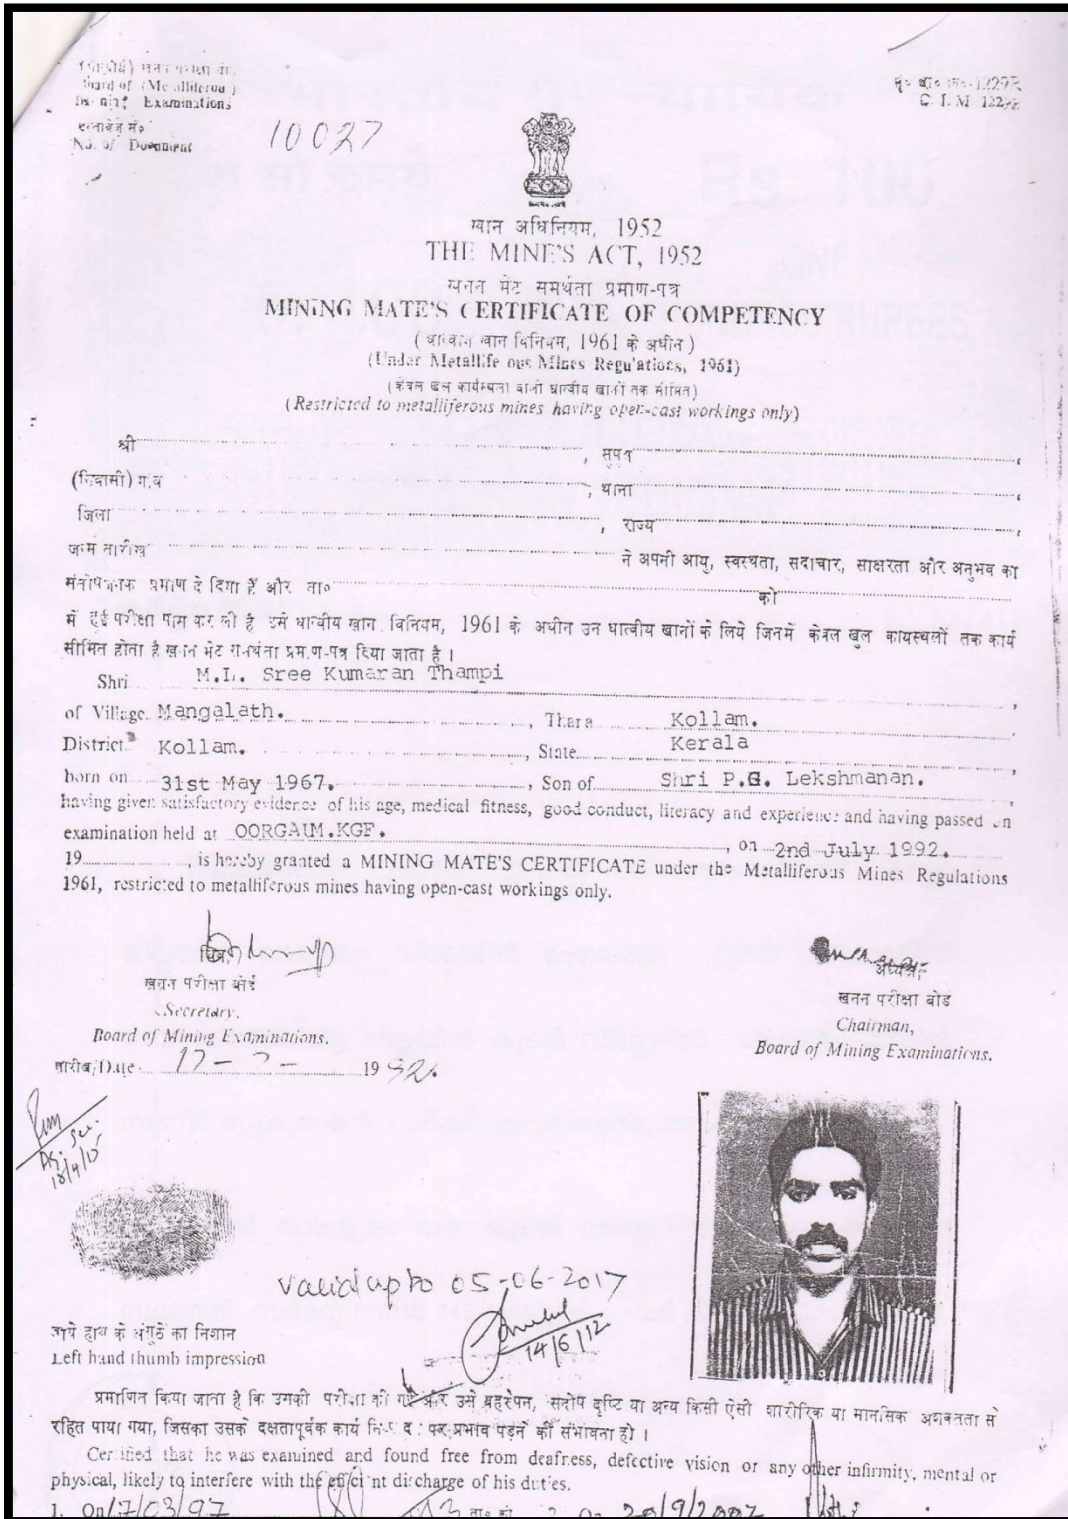 (धात्वीय) खनन परीक्षा बोर्ड
Board of (Metalliferou )
Mining Examinations
दस्तावेज सं०
No. of Document 10027
C. I. M 122
खान अधिनियम, 1952
THE MINE'S ACT, 1952
खनन मेट समर्थता प्रमाण-पत्र
MINING MATE'S CERTIFICATE OF COMPETENCY
(धात्वीय खान विनियम, 1961 के अधीन)
(Under Metallife ous Mines Regu'ations, 1961)
(केवल खुल कार्यस्थलों वाली धात्वीय खानों तक सीमित)
(Restricted to metalliferous mines having open-cast workings only)
श्री , सुपुत्र ,
(निवासी) गांव , थाना ,
जिला , राज्य ,
जन्म तारीख ने अपनी आयु, स्वस्थता, सदाचार, साक्षरता और अनुभव का
संतोषजनक प्रमाण दे दिया हैं और ता० को
में हुई परीक्षा पास कर ली है उसे धात्वीय खान विनियम, 1961 के अधीन उन धात्वीय खानों के लिये जिनमें केवल खुल कायस्थलों तक कार्य
सीमित होता है खनन मेट समर्थता प्रमाण-पत्र दिया जाता है।
Shri M.L. Sree Kumaran Thampi ,
of Village Mangalath. , Thara Kollam.
District Kollam. , State Kerala ,
born on 31st May 1967. , Son of Shri P.G. Lekshmanan. ,
having given satisfactory evidence of his age, medical fitness, good conduct, literacy and experience and having passed an
examination held at OORGAUM.KGF. , on 2nd July 1992.
19 , is hereby granted a MINING MATE'S CERTIFICATE under the Metalliferous Mines Regulations
1961, restricted to metalliferous mines having open-cast workings only.
सचिव, अध्यक्ष,
खनन परीक्षा बोर्ड खनन परीक्षा बोर्ड
Secretary, Chairman,
Board of Mining Examinations. Board of Mining Examinations.
तारीख/Date 17- - 1992.
18/4/15
Valid upto 05-06-2017
14/6/12
बाये हाथ के अंगूठे का निशान
Left hand thumb impression
प्रमाणित किया जाता है कि उसकी परीक्षा की गई और उसे बहरेपन, सदोष दृष्टि या अन्य किसी ऐसी शारीरिक या मानसिक अशक्तता से
रहित पाया गया, जिसका उसके दक्षतापूर्वक कार्य पर प्रभाव पड़ने की संभावना हो।
Certified that he was examined and found free from deafness, defective vision or any other infirmity, mental or
physical, likely to interfere with the effici nt discharge of his duties.
1. On 17/03/97 ता० को 2 On 20/9/2002